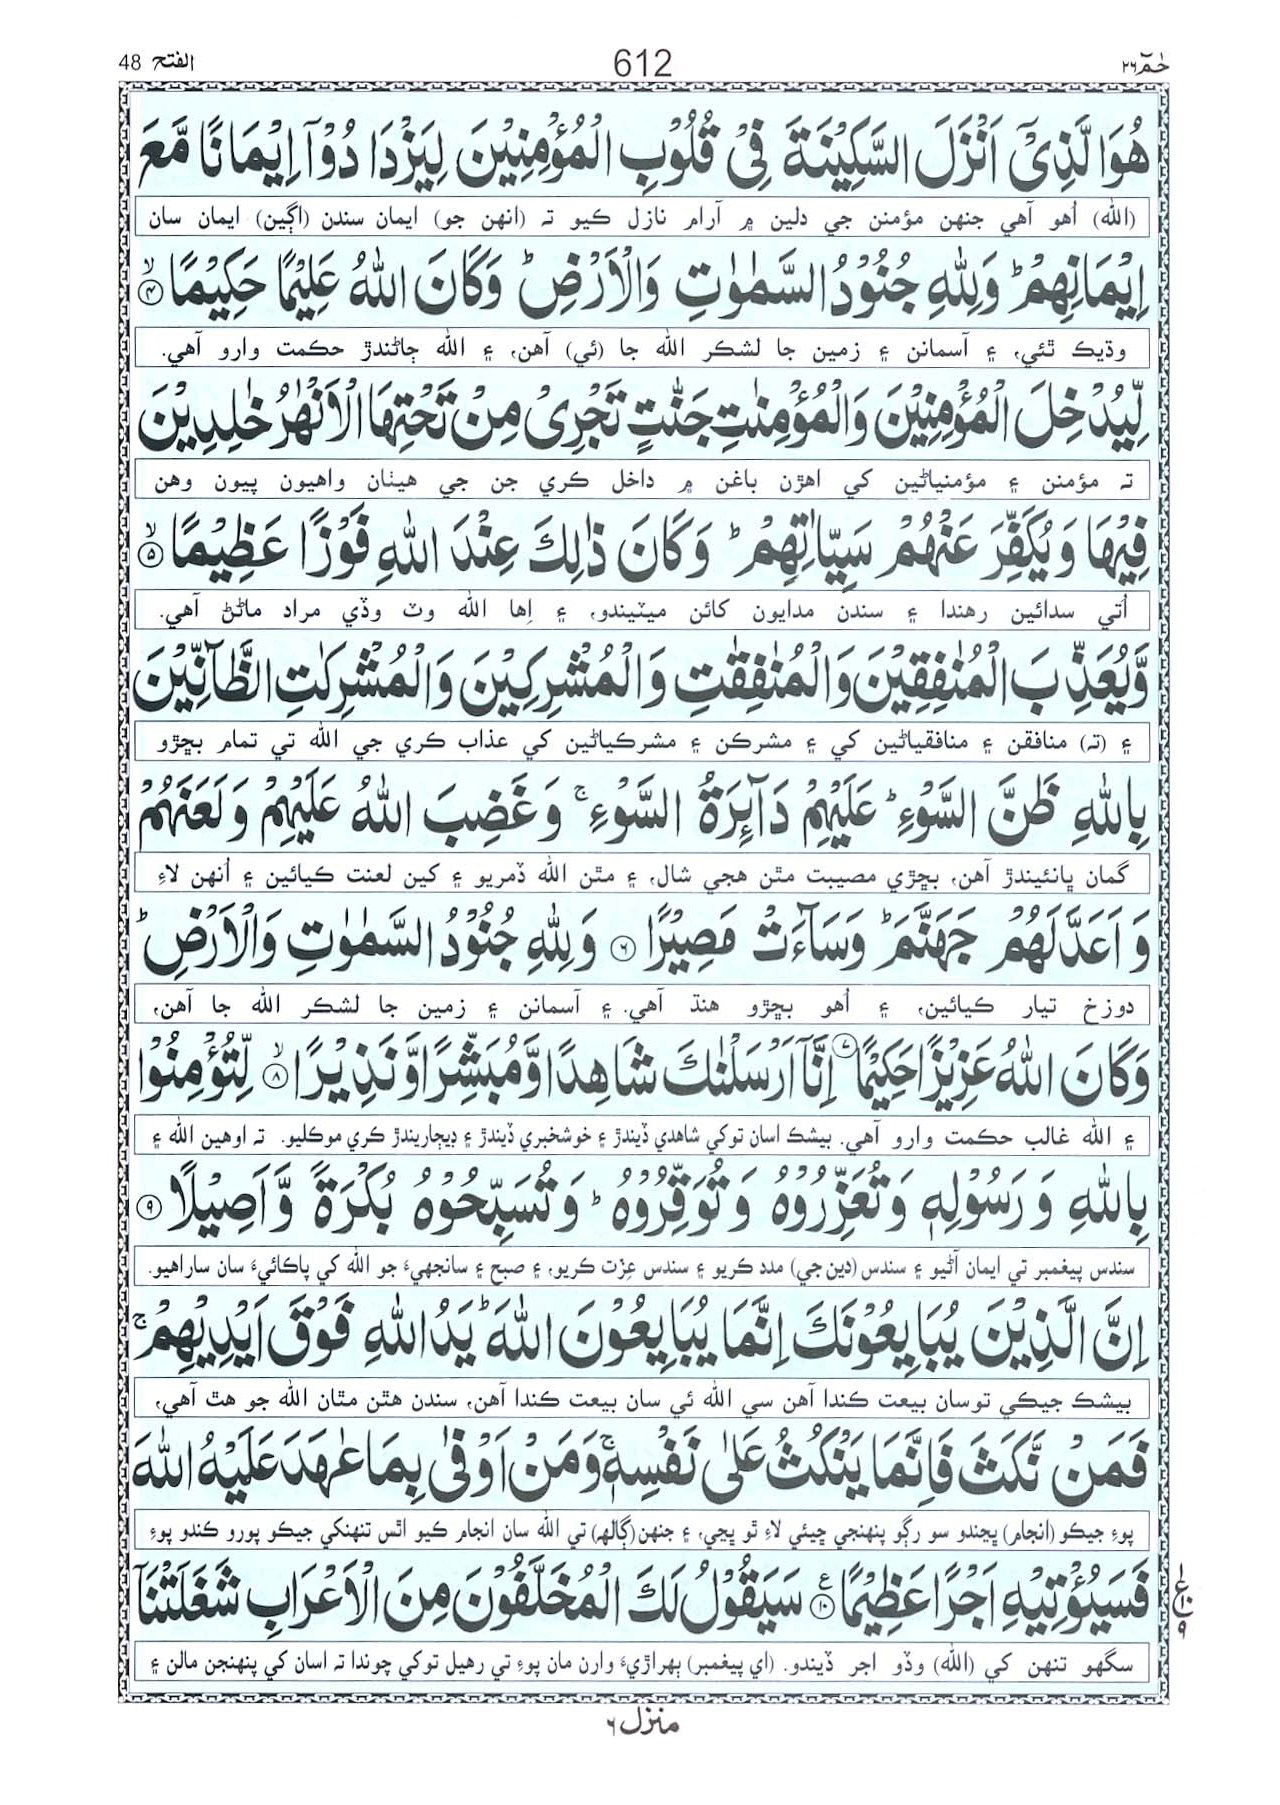 حٰمٓ ٢٦ 612 الفتح 48
هُوَالَّذِیْۤ اَنْزَلَ السَّكِیْنَةَ فِیْ قُلُوْبِ الْمُؤْمِنِیْنَ لِیَزْدَادُوْۤا اِیْمَانًا مَّعَ
(الله) اُهو آهي جنهن مؤمنن جي دلين ۾ آرام نازل ڪيو ته (انهن جو) ايمان سندن (اڳين) ايمان سان
اِیْمَانِهِمْ ؕ وَلِلّٰهِ جُنُوْدُ السَّمٰوٰتِ وَالْاَرْضِ ؕ وَكَانَ اللّٰهُ عَلِیْمًا حَكِیْمًا ۙ﴿۴﴾
وڌيڪ ٿئي، ۽ آسمانن ۽ زمين جا لشڪر الله جا (ئي) آهن، ۽ الله ڄاڻندڙ حڪمت وارو آهي.
لِّیُدْخِلَ الْمُؤْمِنِیْنَ وَالْمُؤْمِنٰتِ جَنّٰتٍ تَجْرِیْ مِنْ تَحْتِهَا الْاَنْهٰرُ خٰلِدِیْنَ
ته مؤمنن ۽ مؤمنياڻين کي اهڙن باغن ۾ داخل ڪري جن جي هيٺان واهيون پيون وهن
فِیْهَا وَیُكَفِّرَ عَنْهُمْ سَیِّاٰتِهِمْ ؕ وَكَانَ ذٰلِكَ عِنْدَ اللّٰهِ فَوْزًا عَظِیْمًا ۙ﴿۵﴾
اُتي سدائين رهندا ۽ سندن مدايون کائن ميٽيندو، ۽ اِها الله وٽ وڏي مراد ماڻڻ آهي.
وَّیُعَذِّبَ الْمُنٰفِقِیْنَ وَالْمُنٰفِقٰتِ وَالْمُشْرِكِیْنَ وَالْمُشْرِكٰتِ الظَّآنِّیْنَ
۽ (ته) منافقن ۽ منافقياڻين کي ۽ مشرڪن ۽ مشرڪياڻين کي عذاب ڪري جي الله تي تمام بڇڙو
بِاللّٰهِ ظَنَّ السَّوْءِ ؕ عَلَیْهِمْ دَآىِٕرَةُ السَّوْءِ ۚ وَغَضِبَ اللّٰهُ عَلَیْهِمْ وَلَعَنَهُمْ
گمان ڀانئيندڙ آهن، بڇڙي مصيبت مٿن هجي شال، ۽ مٿن الله ڏمريو ۽ کين لعنت ڪيائين ۽ اُنهن لاءِ
وَاَعَدَّ لَهُمْ جَهَنَّمَ ؕ وَسَآءَتْ مَصِیْرًا ﴿۶﴾ وَلِلّٰهِ جُنُوْدُ السَّمٰوٰتِ وَالْاَرْضِ ؕ
دوزخ تيار ڪيائين، ۽ اُهو بڇڙو هنڌ آهي. ۽ آسمانن ۽ زمين جا لشڪر الله جا آهن،
وَكَانَ اللّٰهُ عَزِیْزًا حَكِیْمًا ﴿۷﴾ اِنَّاۤ اَرْسَلْنٰكَ شَاهِدًا وَّمُبَشِّرًا وَّنَذِیْرًا ۙ﴿۸﴾ لِّتُؤْمِنُوْا
۽ الله غالب حڪمت وارو آهي. بيشڪ اسان توکي شاهدي ڏيندڙ ۽ خوشخبري ڏيندڙ ۽ ڊيڄاريندڙ ڪري موڪليو. ته اوهين الله ۽
بِاللّٰهِ وَرَسُوْلِهٖ وَتُعَزِّرُوْهُ وَتُوَقِّرُوْهُ ؕ وَتُسَبِّحُوْهُ بُكْرَةً وَّاَصِیْلًا ﴿۹﴾
سندس پيغمبر تي ايمان آڻيو ۽ سندس (دين جي) مدد ڪريو ۽ سندس عِزت ڪريو، ۽ صبح ۽ سانجهيءَ جو الله کي پاڪائيءَ سان ساراهيو.
اِنَّ الَّذِیْنَ یُبَایِعُوْنَكَ اِنَّمَا یُبَایِعُوْنَ اللّٰهَ ؕ یَدُ اللّٰهِ فَوْقَ اَیْدِیْهِمْ ۚ
بيشڪ جيڪي توسان بيعت ڪندا آهن سي الله ئي سان بيعت ڪندا آهن، سندن هٿن مٿان الله جو هٿ آهي،
فَمَنْ نَّكَثَ فَاِنَّمَا یَنْكُثُ عَلٰی نَفْسِهٖ ۚ وَمَنْ اَوْفٰی بِمَا عٰهَدَ عَلَیْهُ اللّٰهَ
پوءِ جيڪو (انجام) ڀڃندو سو رڳو پنهنجي جيئي لاءِ ٿو ڀڃي، ۽ جنهن (ڳالهه) تي الله سان انجام ڪيو اٿس تنهنکي جيڪو پورو ڪندو پوءِ
فَسَیُؤْتِیْهِ اَجْرًا عَظِیْمًا ﴿۱۰﴾ ع سَیَقُوْلُ لَكَ الْمُخَلَّفُوْنَ مِنَ الْاَعْرَابِ شَغَلَتْنَاۤ
سگهو تنهن کي (الله) وڏو اجر ڏيندو. (اي پيغمبر) ٻهراڙيءَ وارن مان پوءِ تي رهيل توکي چوندا ته اسان کي پنهنجن مالن ۽
منزل ٦